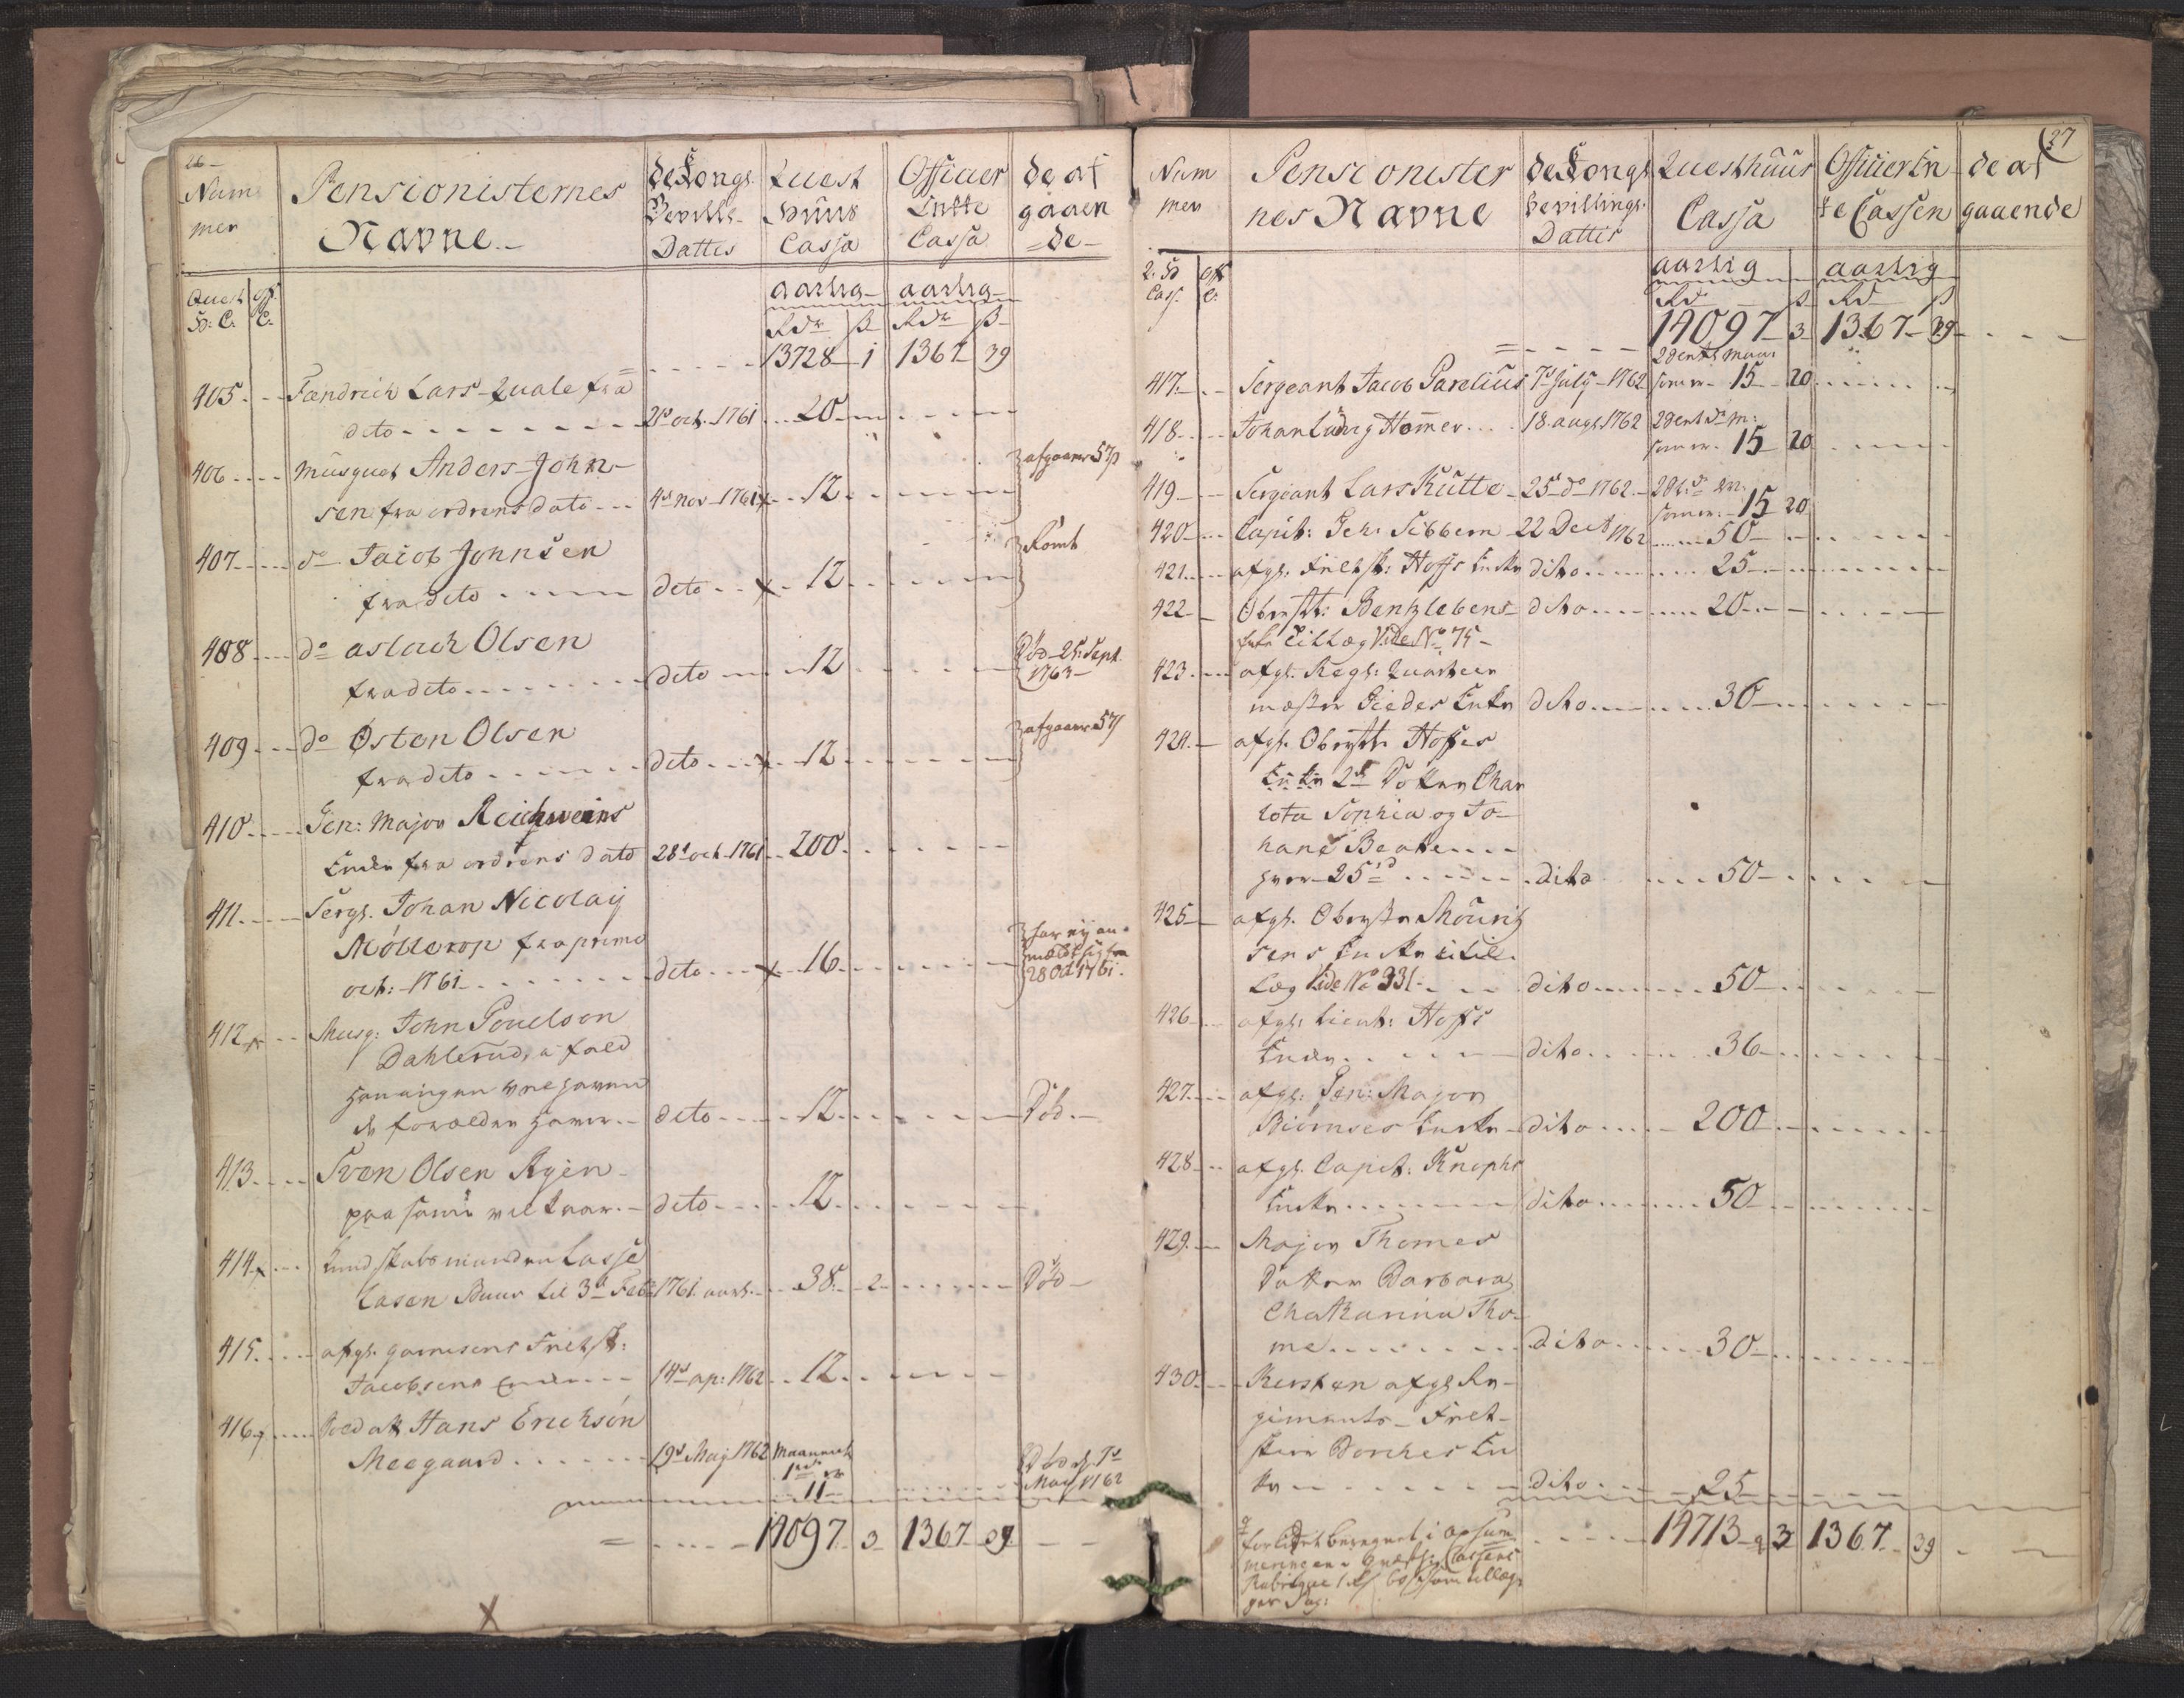 26
Num
mer
Pensionisternes
Navne
de Kongl.
Bevill.
Dattis
Quest
Huus
Cassa
Officier
Enke
Cassa
de af
gaaen
=de=
Quest
H: C:
Off.
C.
aarlig aarlig
Rdr ß Rdr ß
13728 1 1367 39
405 Fændrich Lars Quale fra
dito 21d oct. 1761 20
406 Musquet Anders John-
sen fra ordrens dato 4d nov 1761 x 12 afgaaer 57
407 do Jacob Johnsen
fra dito deto x 12
408 do aslach Olsen
fra dito deto 12 Död 25: Sept.
1763
409 do Østen Olsen
fra dito deto x 12 afgaaer 57
410 Gen: Major Reichweins
Encke fra ordrens dato 28d oct 1761 200
411 Sergt. Johan Nicolaij
Möllerop fra primo
oct: 1761 deto x 16 har ej an-
meldt sig fra
28 Oct 1761.
412 x Musq: John Poulson
Dahlerud, i fald
hand ingen
forældre haver deto 12 Död
413 Sven Olsen Ryen
paa samme vilkaar deto 12
414 x Kundskabsmanden Lasse
Lasen Buur til 3d Feb 1761 aarl. 38 2 Död
415 afgl. garnisons Feltsk:
Jacobsens Encke 14d ap: 1762 12
416 x Soldatt Hans Erichsön
Meegaard 19d Maj 1762 Maanent
1rd
11 Död d. 7d
Maj 1762
= 14097 3 1367 39
X
27
Num
mer
Pensionister
nes Navne
de Kongl.
Bevillings
Dattis
Questhuus
Cassa
Officier En
ke Cassen
de af
gaaende
2. H
Cass.
Off
C:
aarlig aarlig
Rd ß Rd ß
= 14097 3 1367 39
417 Sergeant Jacob Parelius 7d July 1762 15 20
418 Johan Ludvig Homer 18 augt 1762 15 20
419 Sergeant Lars Kutte 25d do 1762 15 20
420 Capit: Joh: Sibbern 22 Dect 1762 50
421 afgl: Feltsk: Hoffs Enke dito 25
422 Obristl: Bentzlebens dito 20
Enke Tillæg Vide No 75
423 afgl. Regts: Quarteer
mester Giedes Enke dito 30
424 afgl. Obristl: Hoffes
Enke 2de Döttre Char
lota Sophia og Jo-
hane Beate
hver 25rd dito 50
425 afgl. Obrister Mouritz
sens Enke til
læg Vide No 331 dito 50
426 afgl: Lieut: Hoffs
Encke dito 36
427 afgl: Gen: Major
Biörnses Enke dito 200
428 afgl. Capit: Knophs
Enke dito 50
429 Major Thomes
Datter Barbara
Chatharina Tho-
me dito 30
430 Kirsten afgl. Re-
giments Felt-
skier Borches En
ke dito 25
14713 3 1367 39
forlidet beregnet i opsum
meringen i Quæsth: Cassens
Rubrique